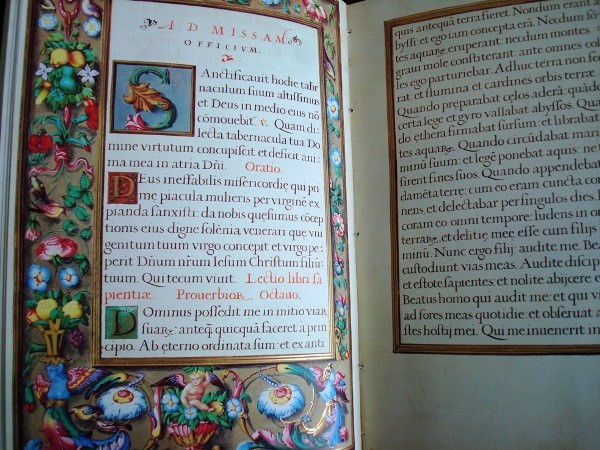 AD MISSAM
OFFICIVM.
SAnctificauit hodie taber
naculum suum altissimus
et Deus in medio eius nō
cōmouebit̉ ℣. Quam di-
lecta tabernacula tua Do
mine virtutum concupiscit et deficit ani:
ma mea in atria Dñi. Oratio.
DEus ineffabilis misericordię qui pri
mę piacula mulieris per virginē ex
pianda sanxisti: da nobis quęsumus cōcep
tionis eius digne solēnia venerari que vir
genitum tuum virgo concepit et virgo pe-
perit Dñum ñrum Iesum Christum filiū
tuum. Qui tecum viuit. Lectio libri sa
pientiæ. Prouerbior. Octauo.
DOminus possedit me in initio viar
suarꝫ: anteq̃ quicquā faceret a prin
cipio. Ab eterno ordinata sum: et ex anti
quis antequā terra fieret. Nondum erant
byssi et ego iam concepta erā. Necdum fō
tes aquarꝫ eruperant: necdum montes
graui mole constiterant: ante omnes col
les ego parturiebar. Adhuc terrā non fec
rat: et flumina et cardines orbis terrę.
Quando pręparabat cęlos aderā quādo
certa lege et gyro vallabat abyssos. Quan
do ęthera firmabat sursum: et librabat
tes aquarꝫ. Quando circūdabat mari
minū suum: et legē ponebat aquis: ne
sirent fines suos. Quando appendebat
damēta terrę: cum eo eram cuncta com
nens, et delectabar per singulos dies.
coram eo omni tempore: ludens in or
terrarꝫ et delitię meę esse cum filijs
minū. Nunc ergo filij: audite me. Beati
custodiunt vias meas. Audite discip
et estote sapientes: et nolite abijcere e
Beatus homo qui audit me: et qui vi
ad fores meas quotidie: et obseruat a
stes hostij mei. Qui me inuenerit in